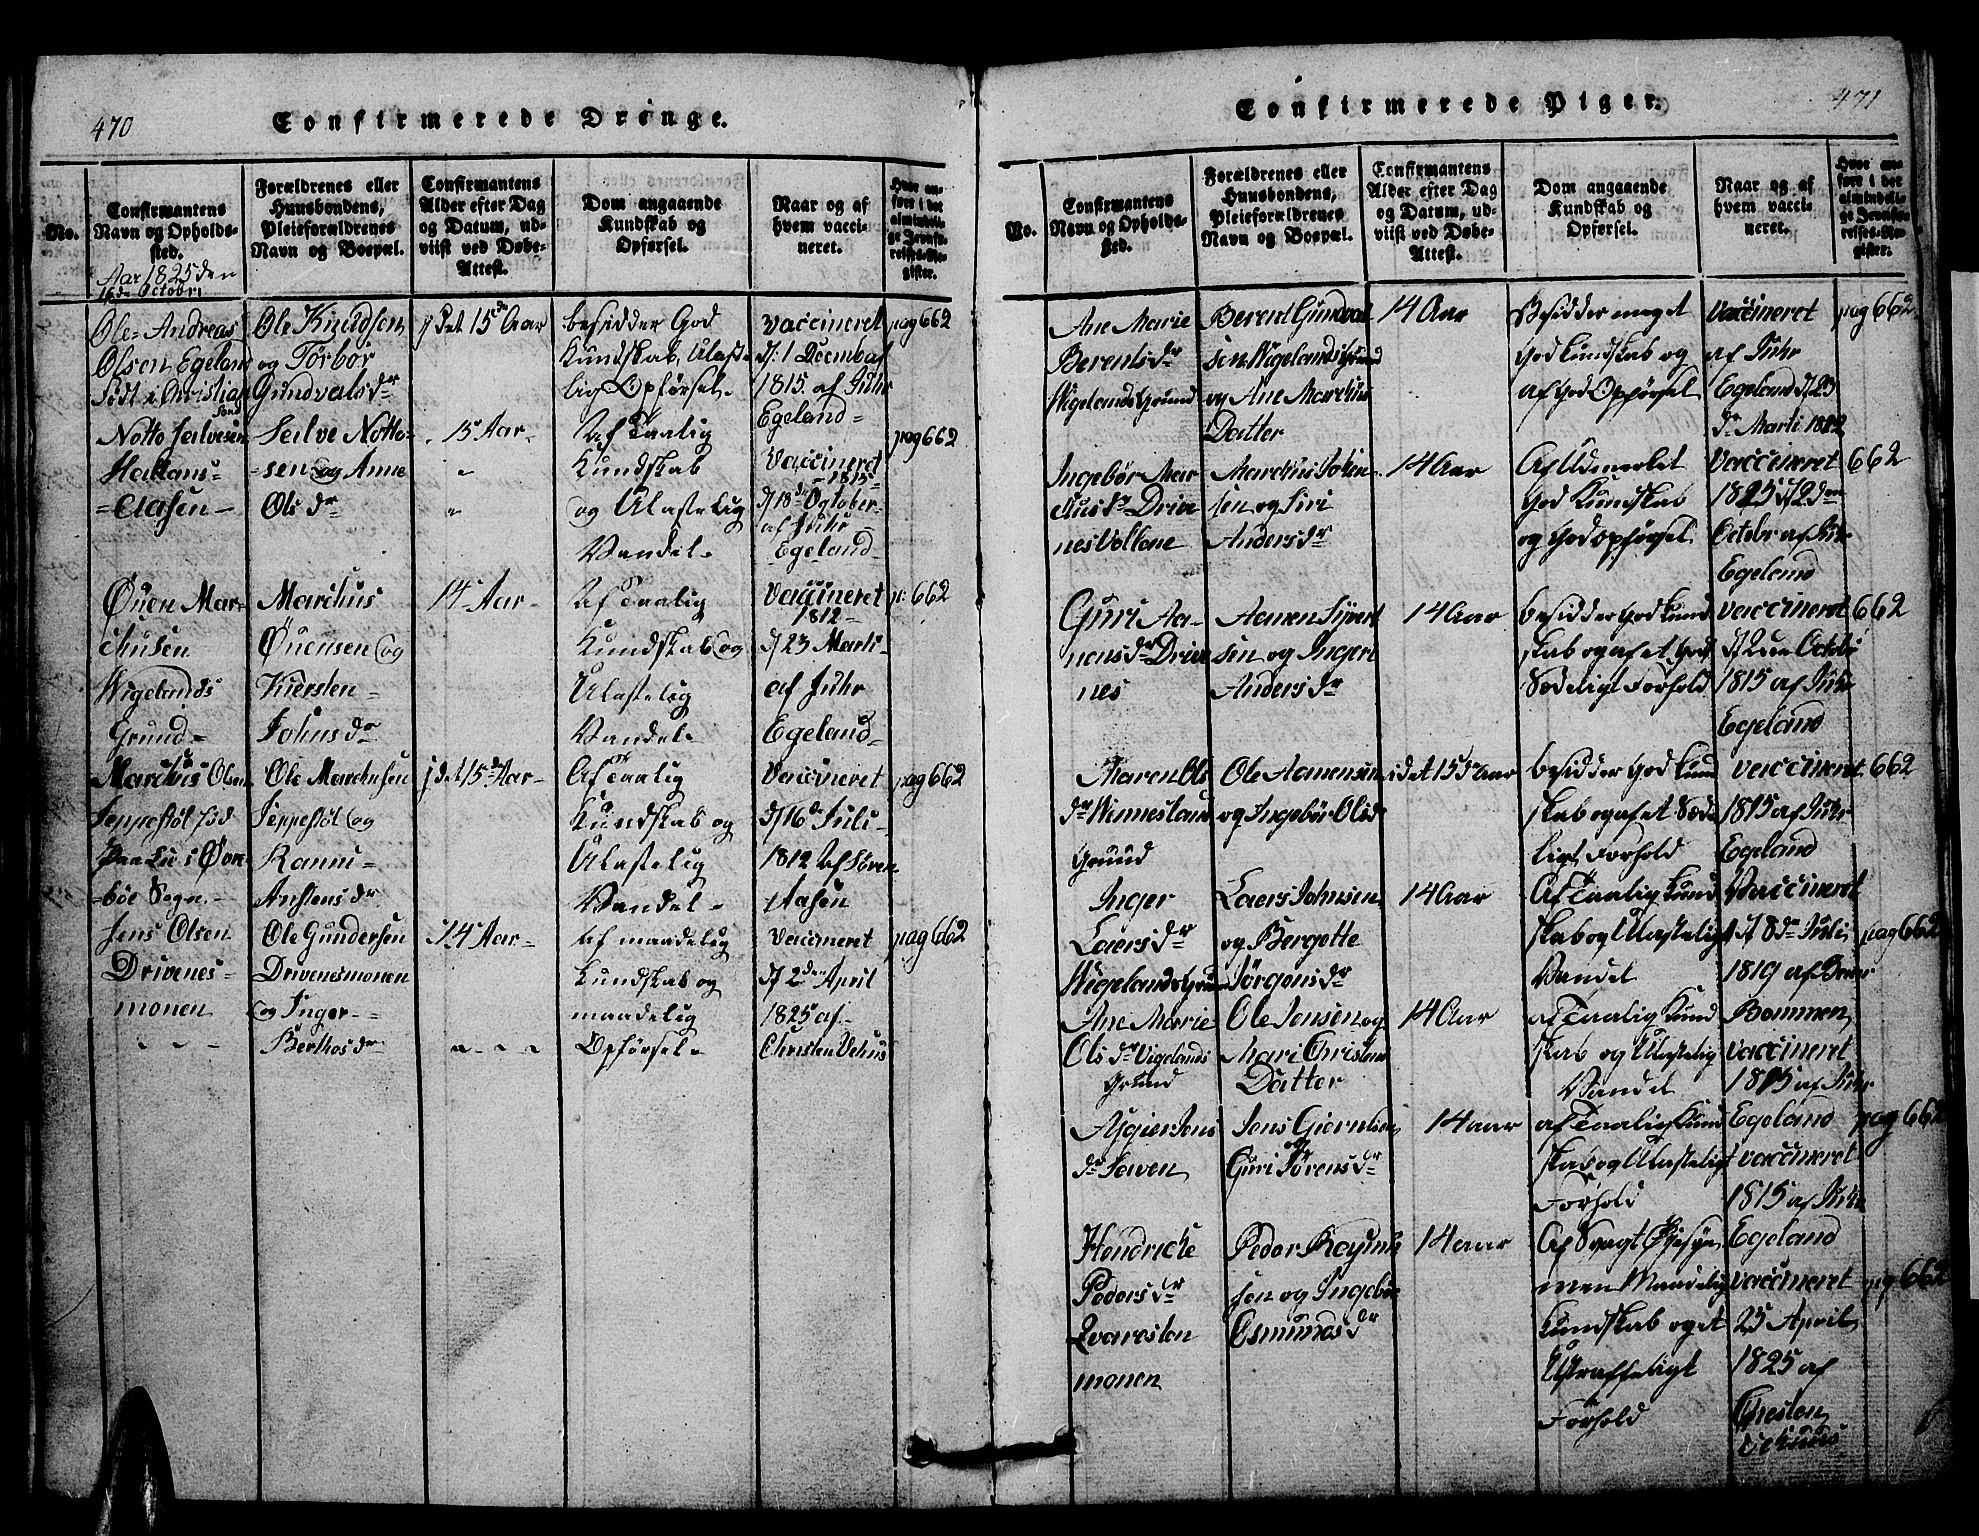 470
Confirmerede Drenge.
No.
Confirmantens
Navn og Opholds-
sted.
Forældrenes eller
Huusbondens,
Pleieforældrenes
Navn og Boepæl.
Confirmantens
Alder efter Dag
og Datum, ud-
viist ved Døbe-
Attest.
Dom angaaende
Kundskab og
Opførsel.
Naar og af
hvem vacci-
neret.
Hvor an-
ført i det
almindeli-
ge Jevnfø-
relses-Re-
gister.
Aar 1825 den
16de October
Ole Andreas
Olsen Egeland
Født i Christian
sand
Ole Knudsen
og Torbor
Gundvalsdr
i det 15de Aar
besidder God
Kundskab, Ulaste-
lig Opførsel.
Vaccineret
d: 1 Decemb af
1815. af Juhr
Egeland
pag 662
Notto Seilvesen
Hallans-
-Aasen
Seilve Notto-
-sen og Anne
Ols dr
15 Aar
Af Taalig
Kundskab
og Ulastelig
Vandel
Vaccineret
1815
d 18de October
af Juhr
Egeland
pag 662
Øuen Mar-
thusen
Wigelands
Grund
Marthus
Øuensen og
Kiersten
Johns dr
14 Aar
Af Taalig
Kundskab og
Ulastelig
Vandel
Vaccineret
1812
d 23 Marti
af Juhr
Egeland
p: 662
Marthus Olsen
Jeppestøl fød
paa Lie i Øvre-
bøe Sogn
Ole Marthusen
Jeppestøl og
Ranni
Anstensdr
i det 15de Aar
Af Taalig
Kundskab og
Ulastelig
Vandel
Vaccineret
d 16de Juli
1812 af Søren
Aasen
pag 662
Jens Olsen
Drivenes-
monen
Ole Gundersen
Drivenesmonen
og Inger
Berthos dr
14 Aar
Af maadelig
Kundskab og
maadelig
Opførsel
Vaccineret
d 2den April
1825 af
Christen Vehus
pag 662
471
Confirmerede Piger.
No.
Confirmantens
Navn og Opholds-
sted.
Forældrenes eller
Huusbondens,
Pleieforældrenes
Navn og Boepæl.
Confirmantens
Alder efter Dag
og Datum, ud-
viist ved Døbe-
Attest.
Dom angaaende
Kundskab og
Opførsel.
Naar og af
hvem vacci-
neret.
Hvor an-
ført i det
almindeli-
ge Jevnfø-
relses-Re-
gister.
Ane Marie
Berents dr
Wigelands Grund
Berent Gundval
sen Wigelands Grund
og Ane Marthus
Datter
14 Aar
Besidder meget
God Kundskab og
af God Opførsel
Vaccineret
af Juhr
Egeland d 23
de Marti 1812
pag 662
Ingebor Mar
thus dr Drive
nes Vollene
Marthus John
sen og Siri
Anders dr
14 Aar
Af Udmerket
God Kundskab
og God Opførsel
Vaccineret
1825 d 2den
Octobr af Juhr
Egeland
662
Guri Aa-
nens dr Drive
nes
Aanen Sivert
sen og Ingeri
Anders dr
14 Aar
besidder God Kund
skab og af et Godt
Sædeligt Forhold
Vaccineret
d 2den Octobr
1815 af Juhr
Egeland
662
Maren Ols
dr Winnesland
Grund
Ole Aanensen
og Ingebor Olsdr
i det 15de Aar
besidder God Kund
skab og af et Sæde
ligt Forhold
Vaccineret
1815 af Juhr
Egeland
662
Inger
Laers dr
Wigelands Grund
Laers Johnsen
og Bergette
Jørgens dr
14 Aar
Af Taalig Kund
skab og Ulastelig
Vandel
Vaccineret
d 8de Juli
1819 af
Bommen
pag 662
Ane Marie
Ols dr Vigelands
Grund
Ole Jensen og
Mari Christens
Datter
14 Aar
af Taalig Kund
skab og Ulastelig
Vandel
Vaccineret
1815 af Juhr
Egeland
pag 662
Asgier Jens
dr
Jens
og
Guri Sørens dr
14 aar
af Taalig Kund
skab og Ulasteligt
Forhold
Vaccineret
1815 af Juhr
Egeland
Hendricke
Peders dr
Qvaresten
monen
Peder
sen og Ingebor
Osmunds dr
14 aar
Af Svagt
men Maadelig
Kundskab og et
Ustraffeligt
Forhold
Vaccineret
25 April
1825 af
Chresten
Vehuus
pag 662